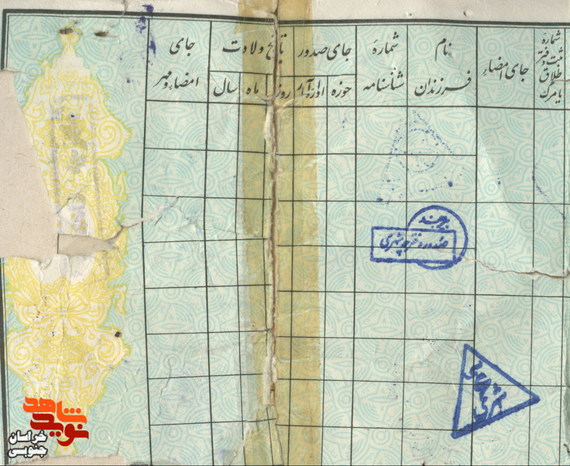 شماره
ثبت دفتر
طلاق
یا مرگ
جای امضاء
نام
فرزندان
شمارهٔ
شناسنامه
جای صدور
حوزه
اداره آمار
تاریخ ولادت
روز
ماه
سال
جای
امضاء و مهر
بیرجند
صدور دفترچه شهری
نوید شاهد
خراسان
جنوبی